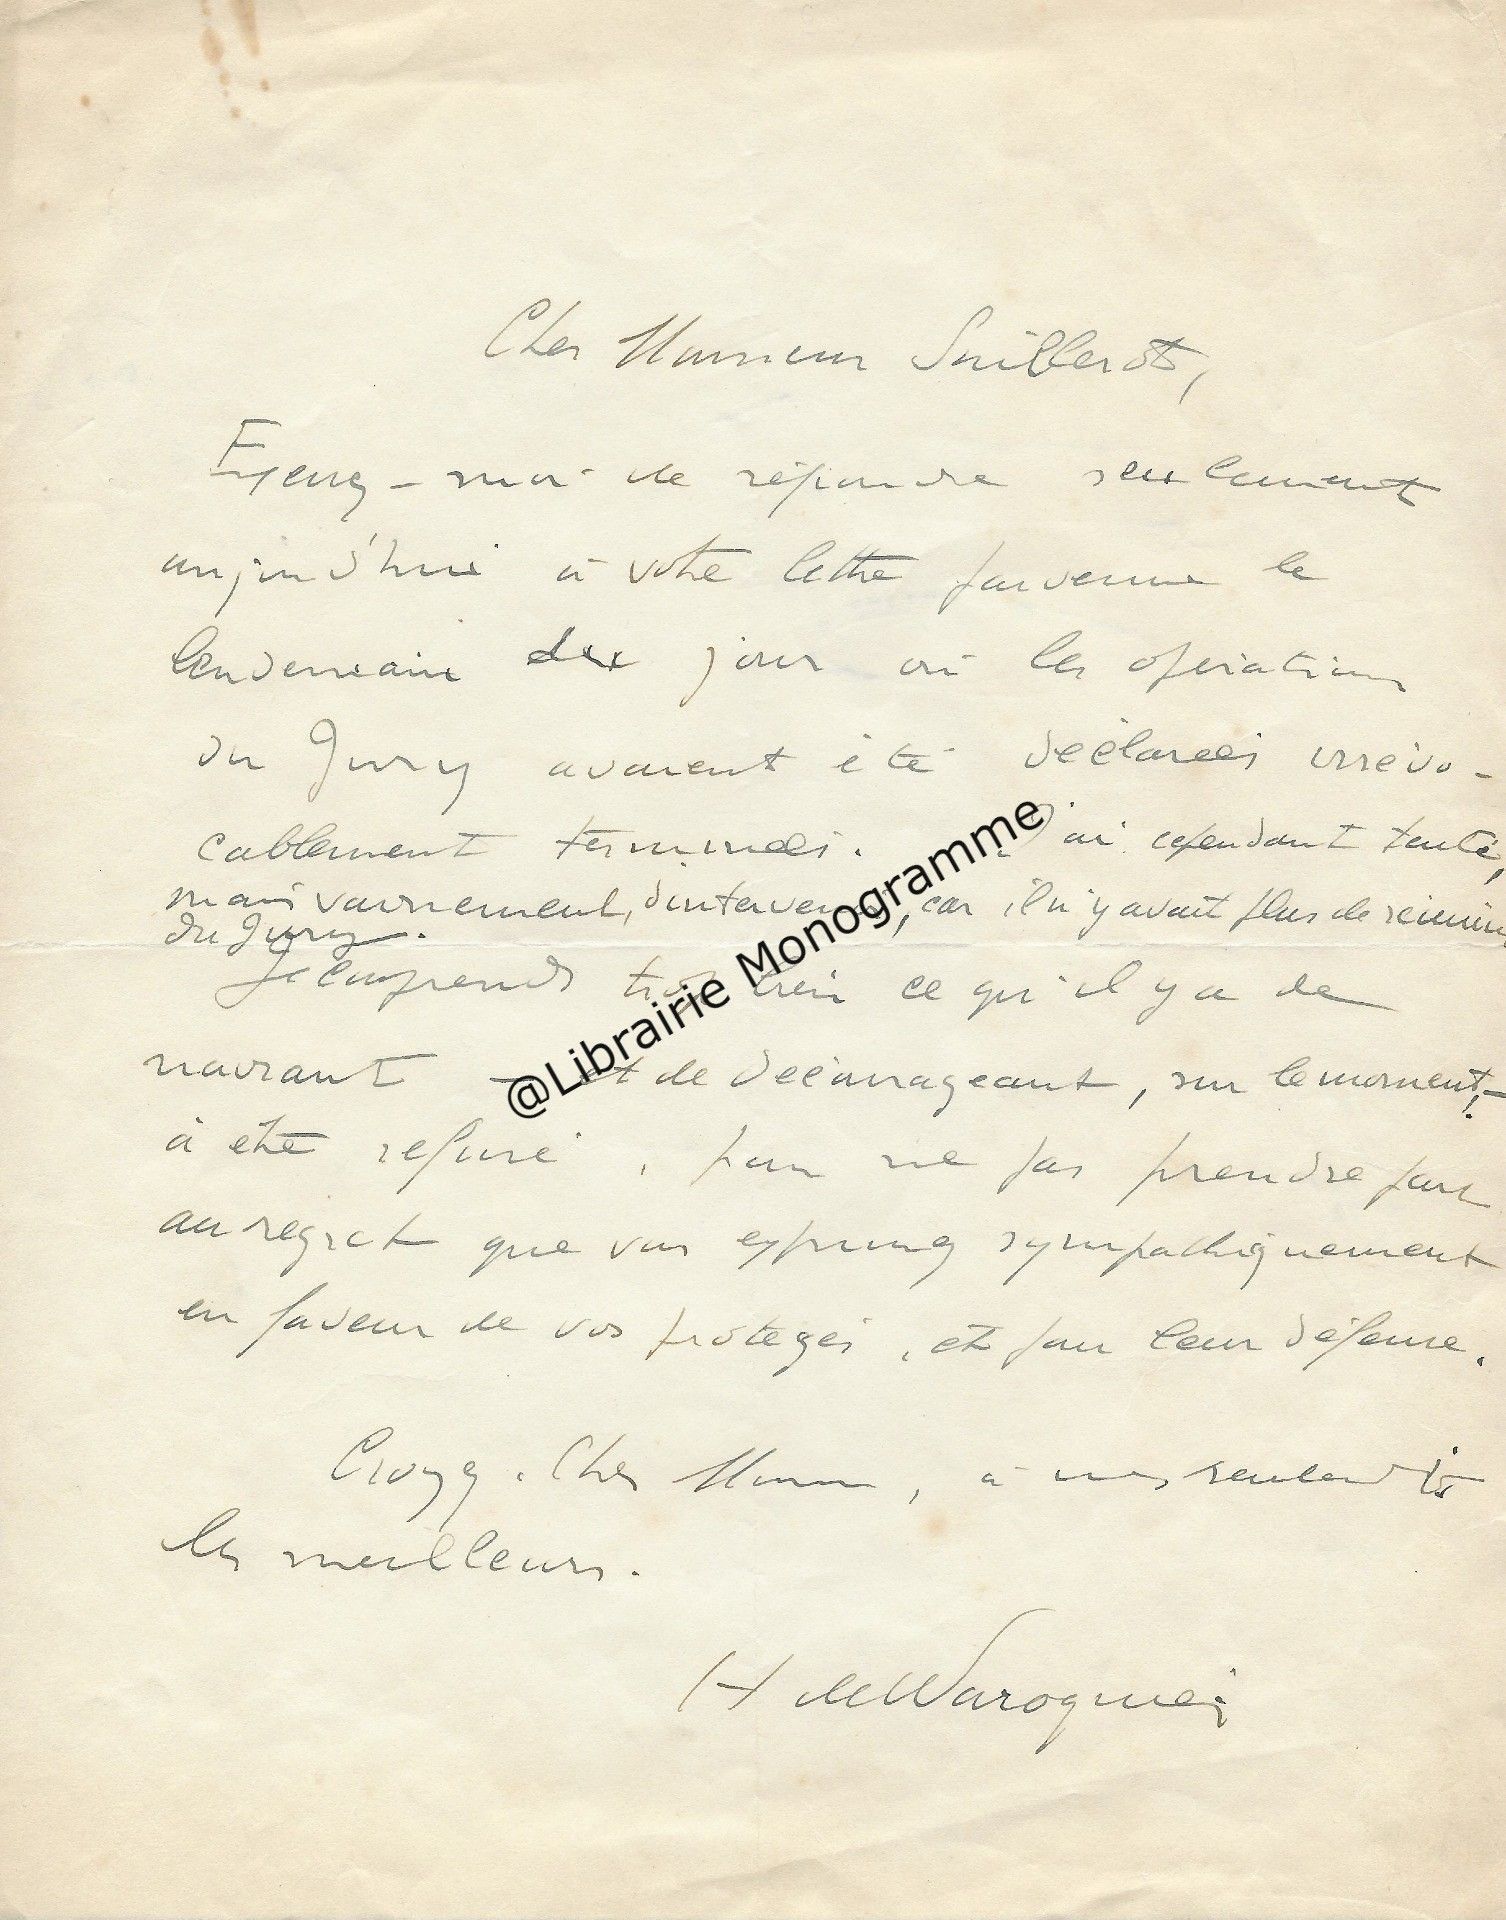 Cher Monsieur Guillerot,
Excusez-moi de répondre seulement
aujourd'hui à votre lettre parvenue le
lendemain du jour où les opérations
du Jury avaient été déclarées irrévo-
cablement terminées. J'ai cependant tenté,
mais vainement, d'intervenir, car il n'y avait plus de réunion
du Jury.
Je comprends trop bien ce qu'il y a de
navrant et de décourageant, sur le moment,
à être refusé, pour ne pas prendre part
au regret que vous exprimez sympathiquement
en faveur de vos protégés, et pour leur défense.
Croyez, Cher Monsieur, à mes sentiments
les meilleurs.
H de Waroquier
@Librairie Monogramme